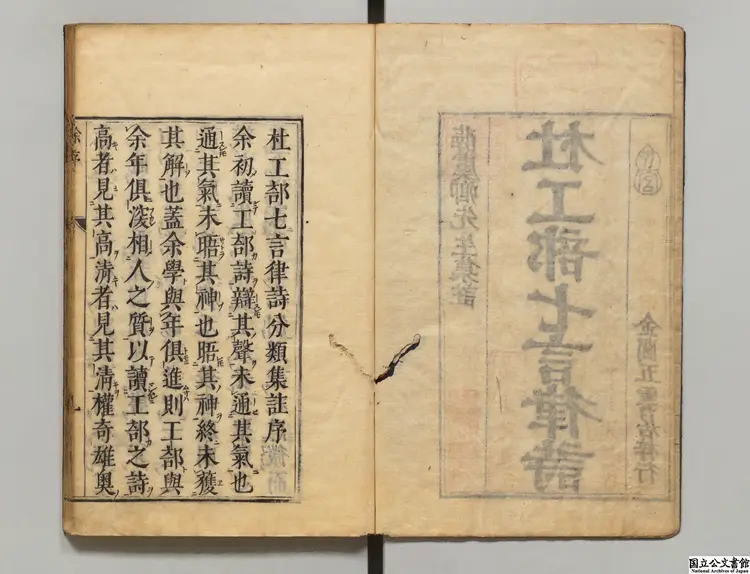 杜工部七言律詩
先生集註
杜工部七言律詩分類集註序
余初讀工部詩辯其聲未通其氣也
通其氣未晤其神也晤其神終未獲
其解也蓋余學與年俱進則工部與
余年俱深相入之質以讀工部之詩
高者見其高清者見其清權奇雄奧
国立公文書館
National Archives of Japan